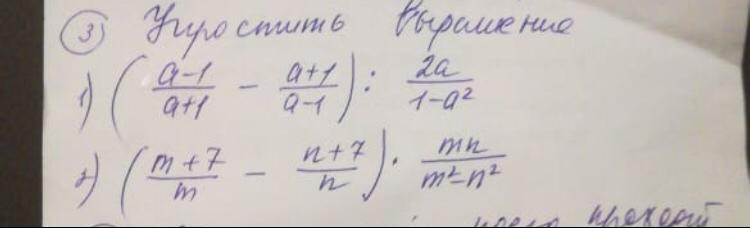 3) Упростить выражение
1) ( a-1/a+1 - a+1/a-1 ) : 2a/1-a²
2) ( m+7/m - n+7/n ) · mn/m²-n²
проходит